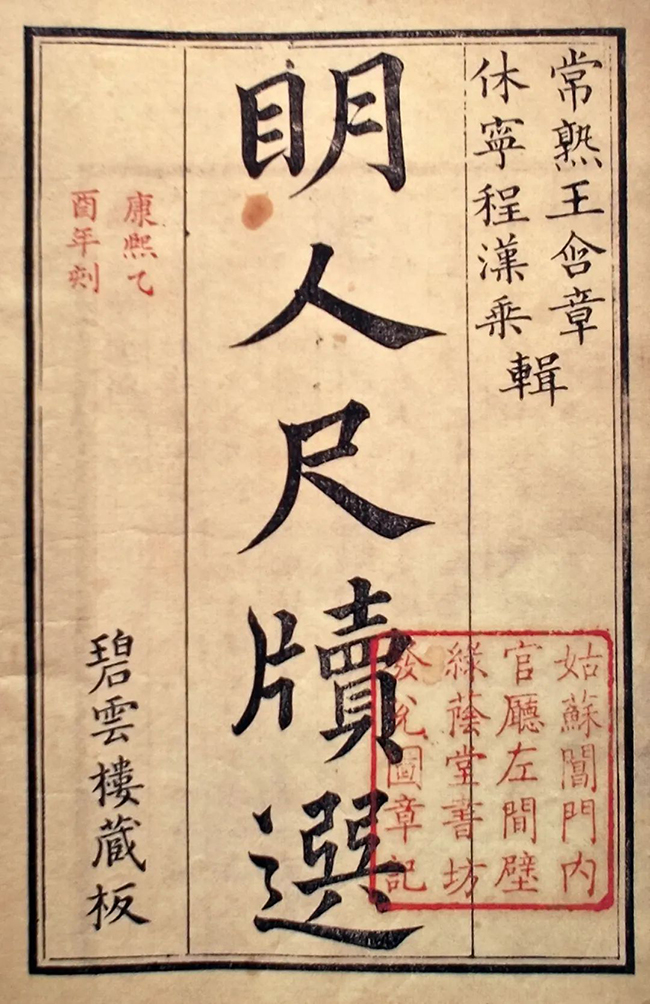 常熟王含章
休寧程漢乘
輯
眀人尺牘選
康熙乙
酉年刻
碧雲樓蔵板
姑蘇閶門内
官廳左間壁
綠蔭堂書坊
發兌圖章記